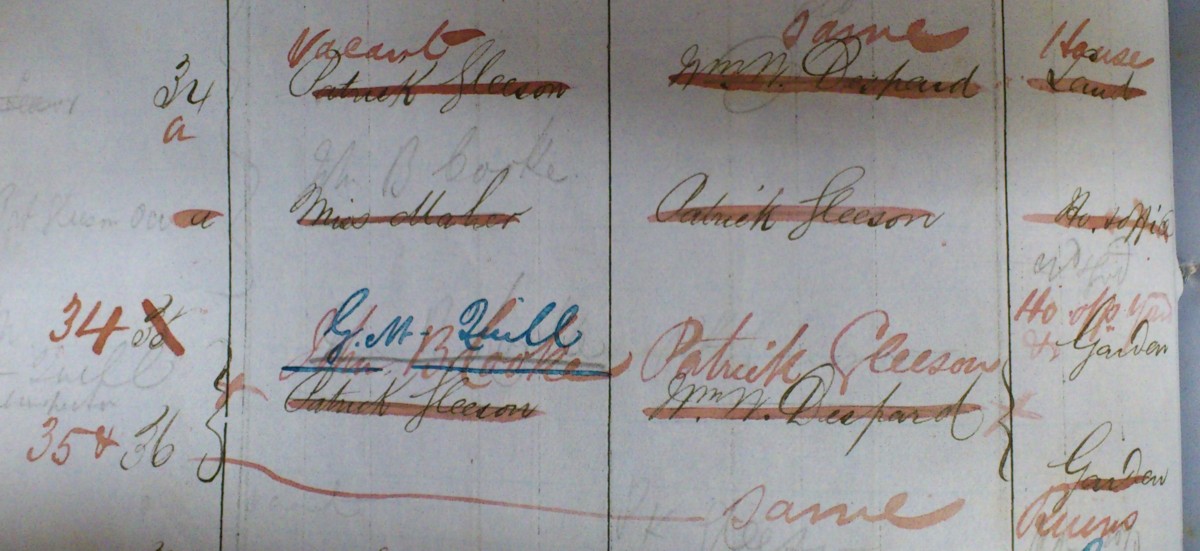 Vacant same House
34 Patrick Gleeson Wm. W. Despard Land
a
Jn B Cooke
a Miss Maher Patrick Gleeson Ho. & office
G. M. Quill Ho off yard
34 35 Jhn B Cooke Patrick Gleeson & Garden
Patrick Gleeson Wm. W. Despard
35 & 36
Garden
same Ruins